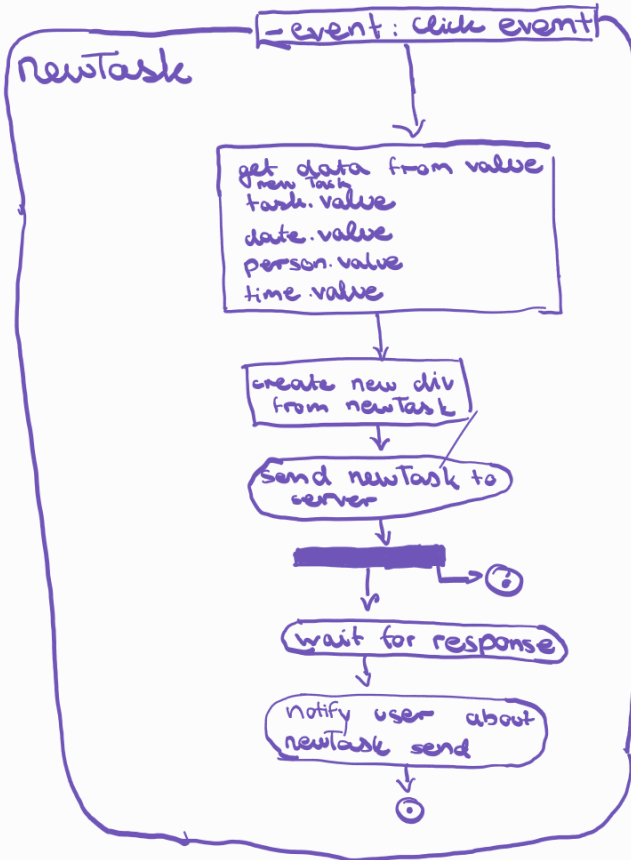 - event: click event
newTask
get data from value
new Task
task.value
date.value
person.value
time.value
create new div
from newTask
send newTask to
server
wait for response
notify user about
newTask send